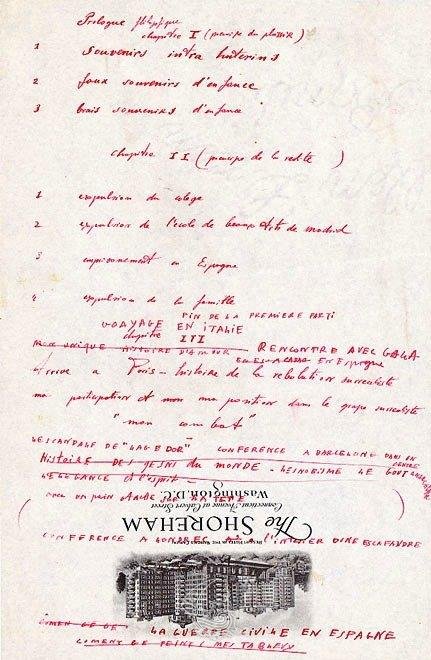 Prologue
chapitre I (principe du plaisir)
1 Souvenirs intra Uuterins
2 faux souvenirs d'enfance
3 brais souvenirs d'enfance
chapitre II (principe de la realite )
1 expulsion du colege
2 expulsion de l'ecole de beaux Arts de madrid
3 emprisonement en Espagne
4 expulsion de la famille
FIN DE LA PREMIERE PARTI
VOAYAGE EN ITALIE
chapitre III
MON UNIQUE HISTOIRE D'AMOUR RENCONTRE AVEC GALA
EN Espagne
Arrive a Paris - histoire de la rebolution surrealiste
ma participation et mon ma position dans le grupe surrealiste
"mon combat"
LE SCANDALE DE "LAGE DOR" CONFERENCE A BARCELONE DANS UN
CENTRE
HistoiRE DES JESNS du MONDE - LESNOBISME LE GOUT
LELEGANCE et l'esprit -
( avec un pain SUR MA TETE )
The SHOREHAM
Connecticut Avenue at Calvert Street
Washington, D.C.
CONFERENCE A LONDRES A L'INTERIER DUNE ESCAFANDRE
LA GUERRE CIVILE EN ESPAGNE
COMENT JE PEINE MES TABLEUX